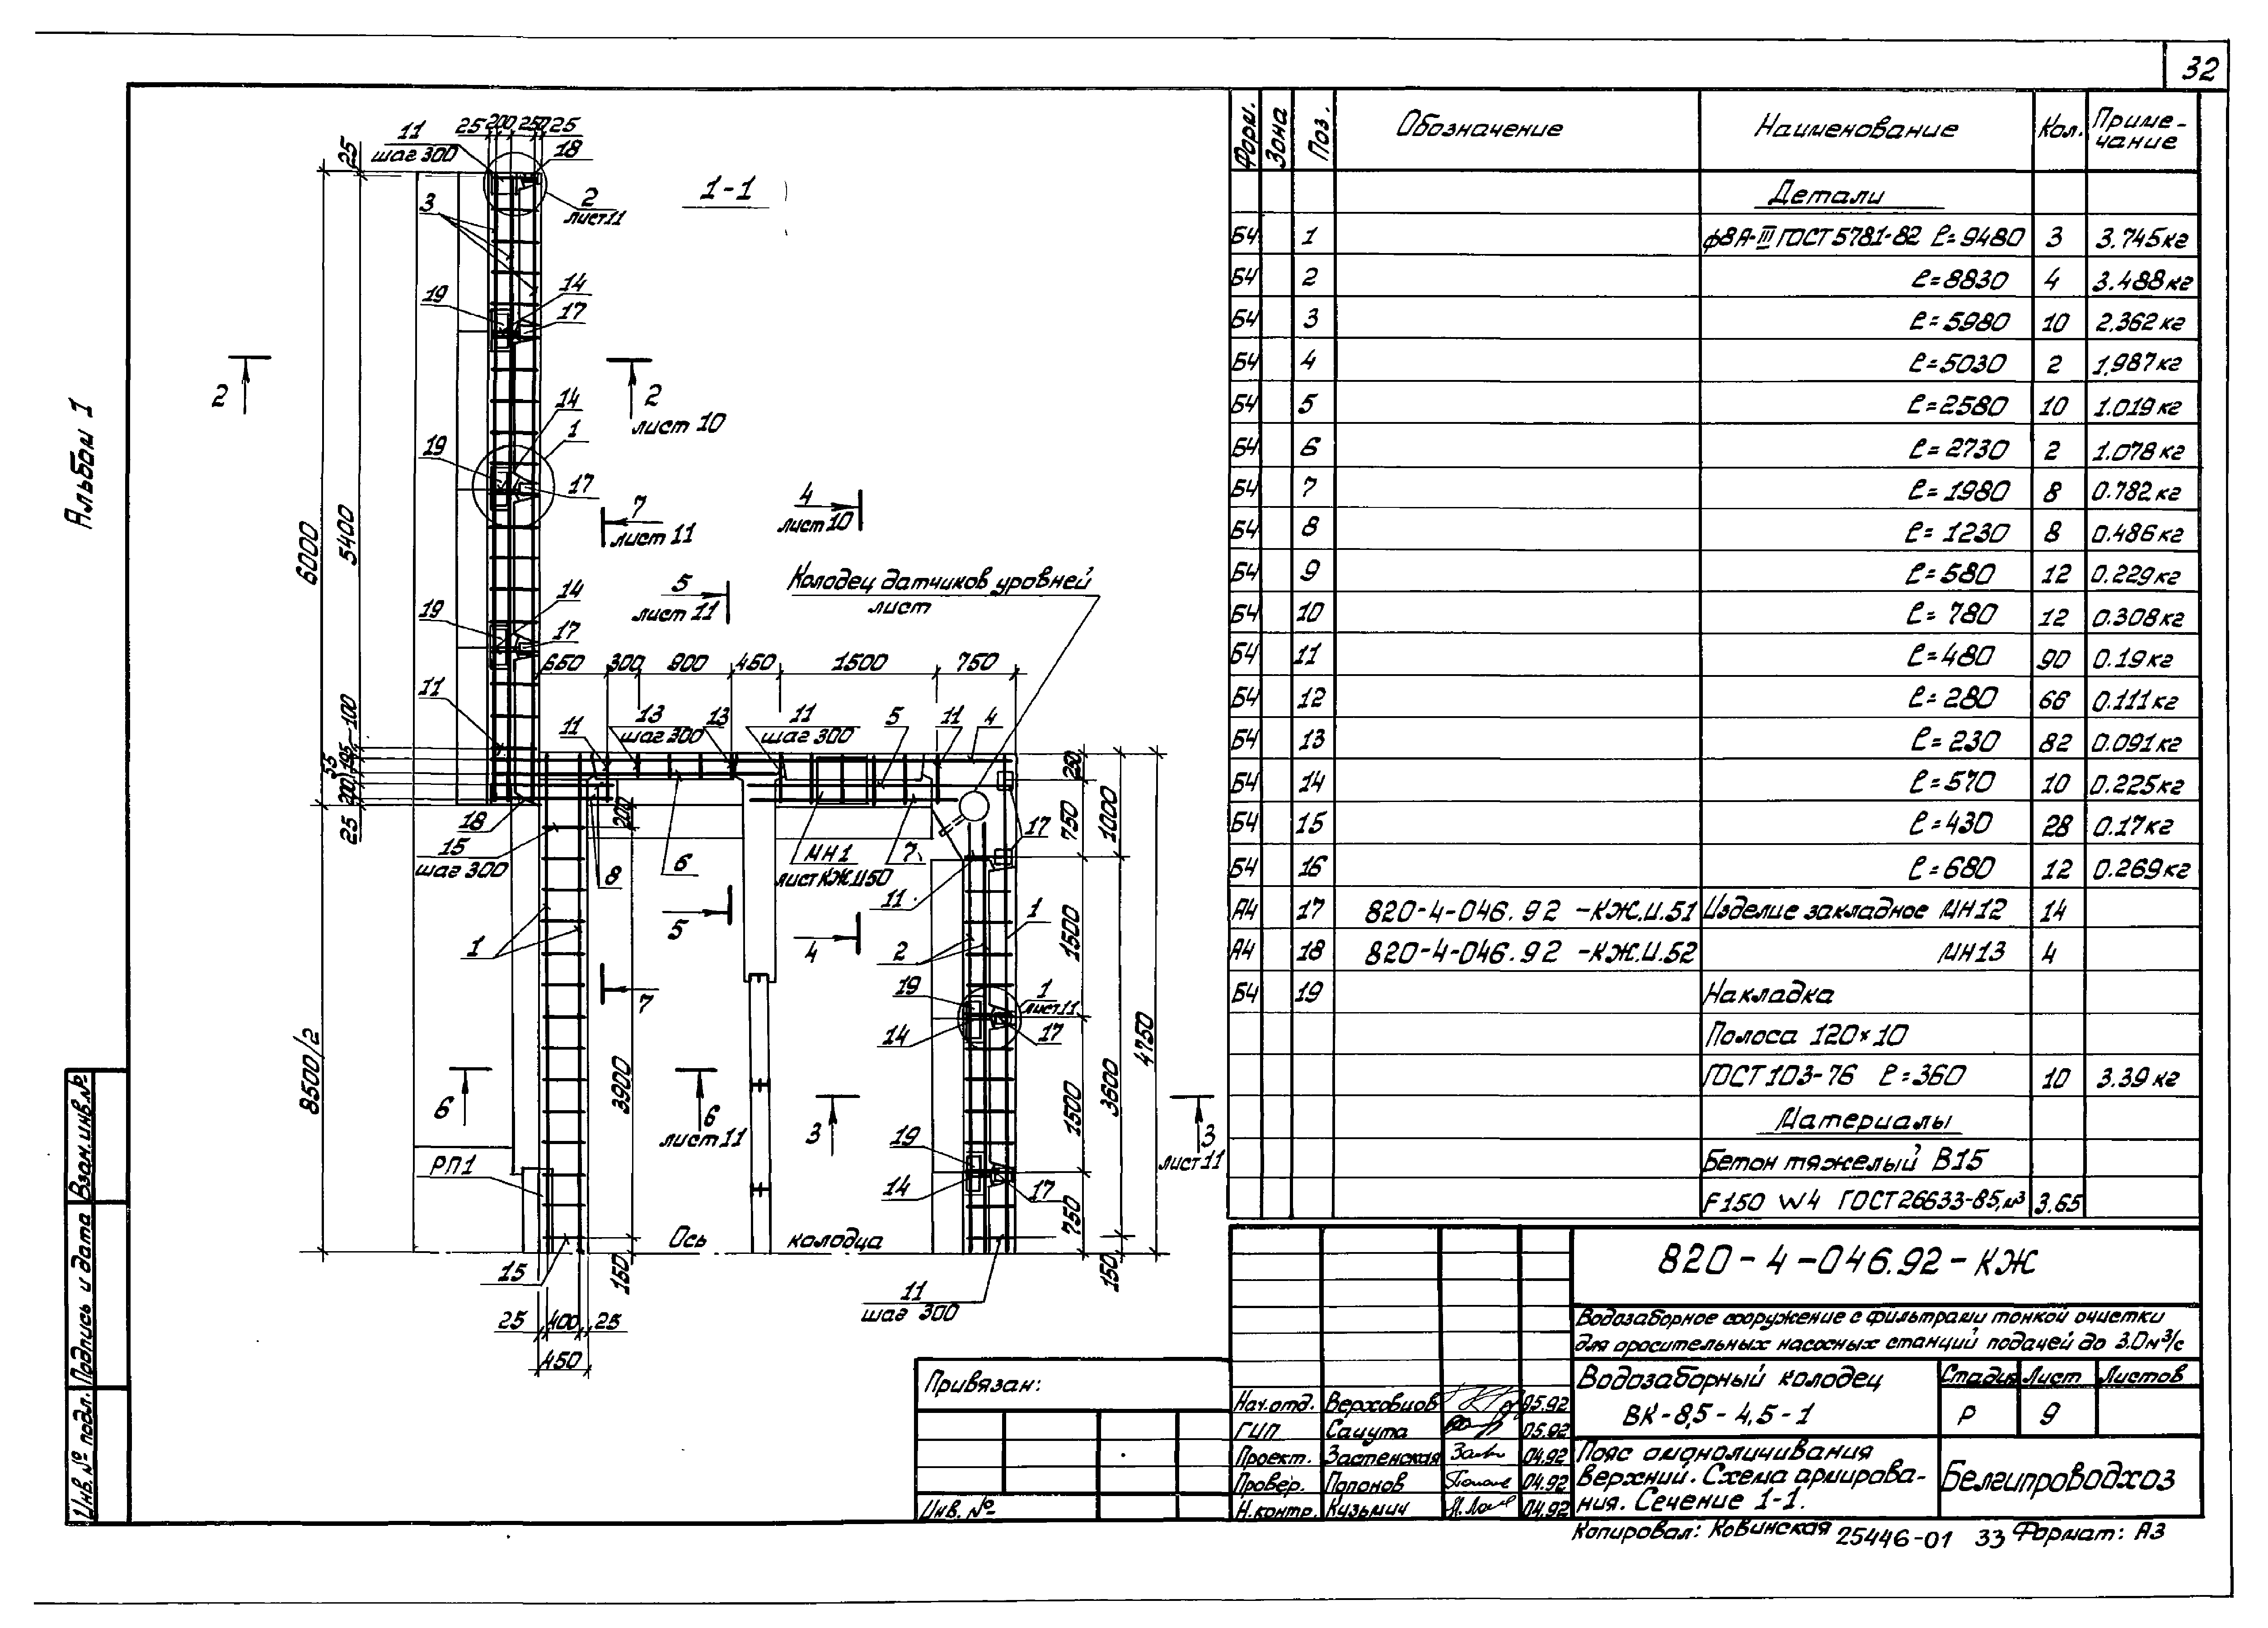 32
Альбом 1
1-1
11
шаг 300
25 200 250 25
18
2
лист 11
3
25
6000
5400
19
14
17
2
2
лист 10
14
1
19
17
7
лист 11
4
лист 10
5
лист 11
Колодец датчиков уровней
лист
19
14
17
650 300 900 450 1500 750
11
100
195
55
200
25
11
13
шаг 300
13
11
шаг 300
5
11
4
250
750
1000
18
15
шаг 300
200
8
6
МН1
лист КЖ.И50
7
17
11
1
5
4
1
2
7
1500
19
14
1
лист 11
17
8500/2
3900
3600
4750
6
6
лист 11
3
3
лист 11
1500
РП1
19
14
17
750
Ось колодца
15
150
150
11
шаг 300
25 400 25
450
Форм. Зона Поз. Обозначение Наименование Кол. Приме-
чание
Детали
БЧ 1 ф8А-III ГОСТ 5781-82 ℓ=9480 3 3.745кг
БЧ 2 ℓ=8830 4 3.488кг
БЧ 3 ℓ=5980 10 2.362кг
БЧ 4 ℓ=5030 2 1.987кг
БЧ 5 ℓ=2580 10 1.019кг
БЧ 6 ℓ=2730 2 1.078кг
БЧ 7 ℓ=1980 8 0.782кг
БЧ 8 ℓ=1230 8 0.486кг
БЧ 9 ℓ=580 12 0.229кг
БЧ 10 ℓ=780 12 0.308кг
БЧ 11 ℓ=480 90 0.19кг
БЧ 12 ℓ=280 66 0.111кг
БЧ 13 ℓ=230 82 0.091кг
БЧ 14 ℓ=570 10 0.225кг
БЧ 15 ℓ=430 28 0.17кг
БЧ 16 ℓ=680 12 0.269кг
А4 17 820-4-046.92 -КЖ.И.51 Изделие закладное МН12 14
А4 18 820-4-046.92 -КЖ.И.52 МН13 4
БЧ 19 Накладка
Полоса 120×10
ГОСТ 103-76 ℓ=360 10 3.39кг
Материалы
Бетон тяжелый В15
F150 W4 ГОСТ 26633-85, м³ 3.65
820-4-046.92-КЖ
Водозаборное сооружение с фильтрами тонкой очистки
для оросительных насосных станций подачей до 3.0м³/с
Водозаборный колодец
ВК-8,5-4,5-1
Стадия Лист Листов
Р 9
Пояс омоноличивания
верхний. Схема армирова-
ния. Сечение 1-1.
Белгипроводхоз
Нач.отд. Верховцов 05.92
ГИП Сацута 05.92
Проект. Застенская 04.92
Провер. Попонов 04.92
Н.контр. Кузьмич 04.92
Привязан:
Инв. №
Взам.инв.№
Подпись и дата
Инв.№ подл.
Копировал: Ковинская 25446-01 33 Формат: А3